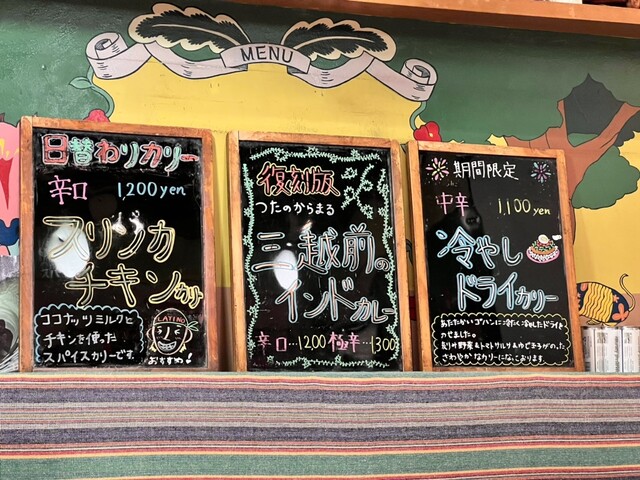 MENU
日替わりカリー
辛口 1,200yen
スリランカ
チキンカリー
ココナッツミルクと
チキンを使った
スパイスカリーです。
LATINO
おすすめ!
復刻版
つたのからまる
三越前の
インドカレー
辛口…1200 極辛…1300
期間限定
中辛 1,100yen
冷やし
ドライカリー
あたたかいゴハンに冷たく冷したドライを
のせました。
彩り野菜&トマトサルサ&ゆでたまごがのった
さわやかなカリーになっております。